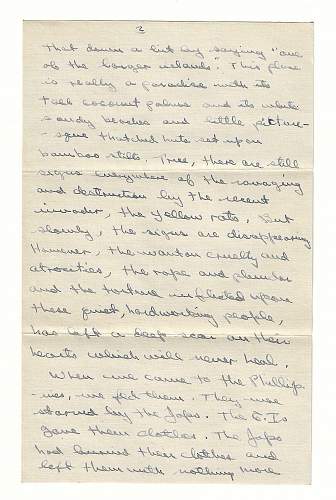 2
that down a bit by saying "one
of the larger islands". This place
is really a paradise with its
tall coconut palms and its white
sandy beaches and little pictur-
- sque thatched huts set upon
bamboo stilts. True, there are still
signs everywhere of the ravaging
and destruction by the recent
invader, the yellow rats, but
slowly, the signs are disappearing
However, the wanton cruelty and
atrocities, the rape and plunder
and the torture inflicted upon
these quiet, hardworking people,
has left a deep scar on their
hearts which will never heal.
When we came to the Phillip-
-ines, we fed them. They were
starved by the Japs. The G.Is
gave them clothes. The Japs
had burned their clothes and
left them with nothing more